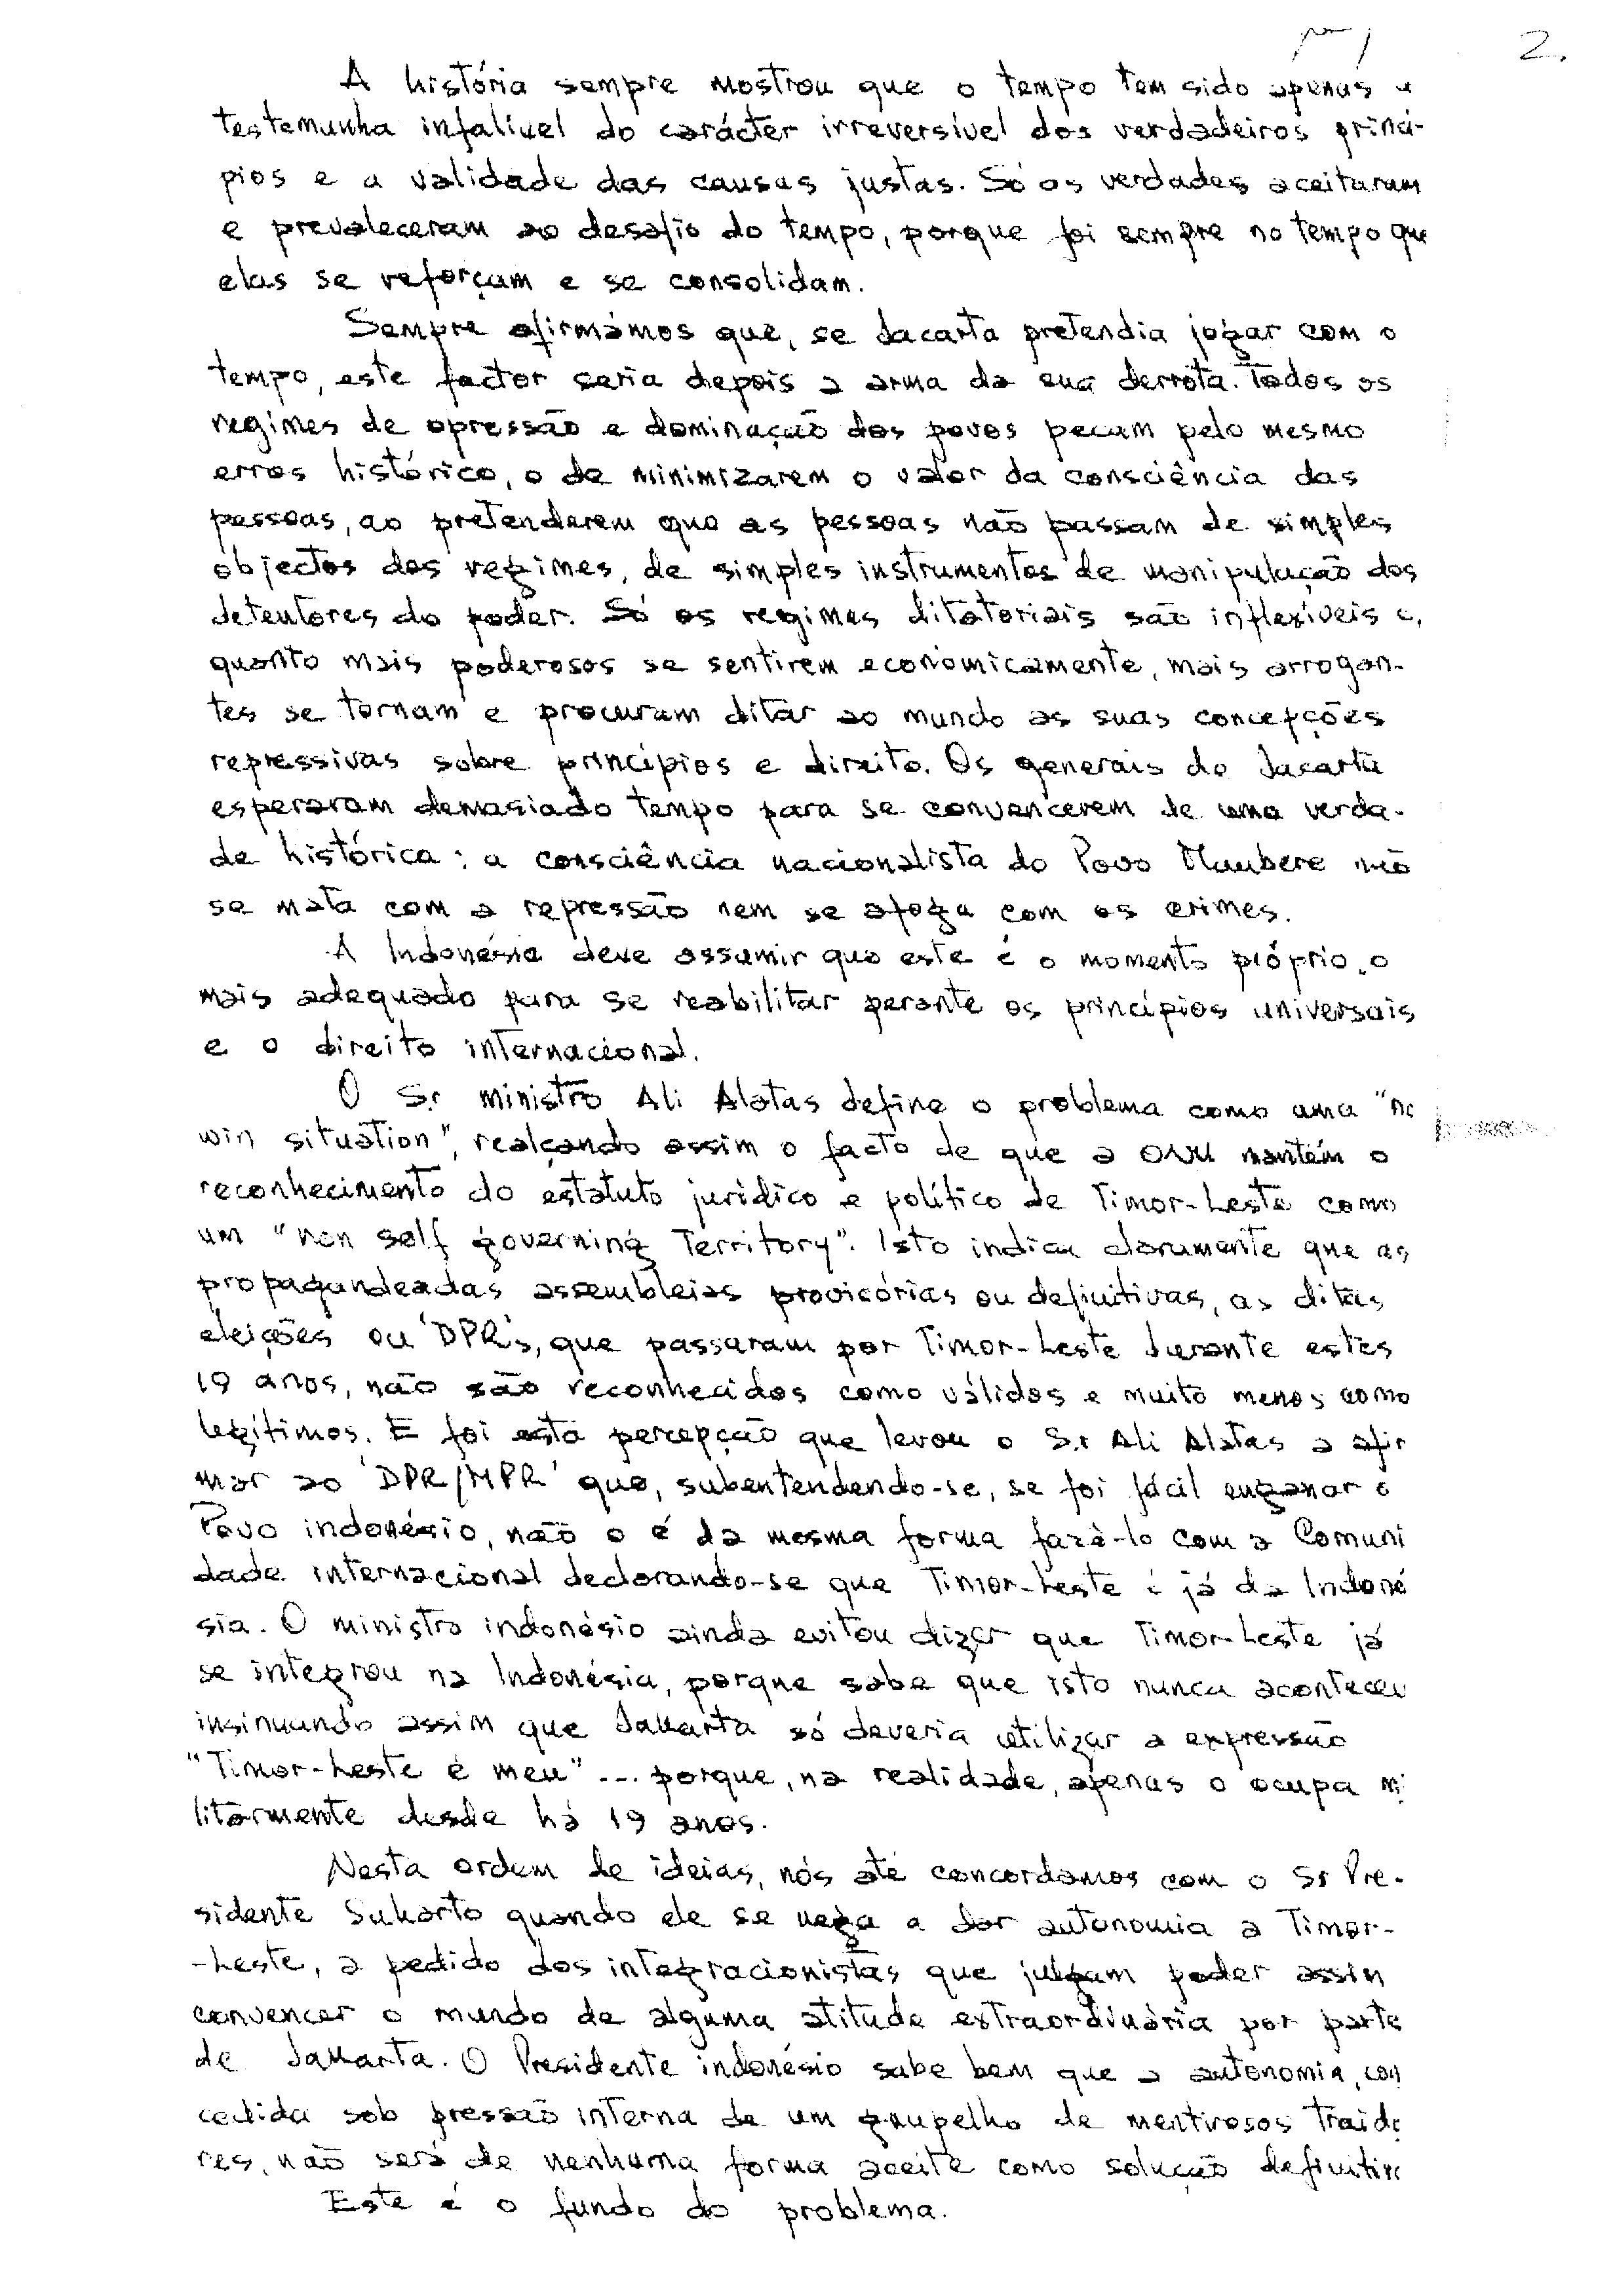 2.
A história sempre mostrou que o tempo tem sido apenas a
testemunha infalível do carácter irreversível dos verdadeiros princí-
pios e a validade das causas justas. Só as verdades aceitaram
e prevaleceram ao desafio do tempo, porque foi sempre no tempo que
elas se reforçam e se consolidam.
Sempre afirmámos que, se Jacarta pretendia jogar com o
tempo, este factor seria depois a arma da sua derrota. Todos os
regimes de opressão e dominação dos povos pecam pelo mesmo
erros histórico, o de minimizarem o valor da consciência das
pessoas, ao pretenderem que as pessoas não passam de simples
objectos dos regimes, de simples instrumentos de manipulação dos
detentores do poder. Só os regimes ditatoriais são inflexíveis e,
quanto mais poderosos se sentirem económicamente, mais arrogan-
tes se tornam e procuram ditar ao mundo as suas concepções
repressivas sobre princípios e direito. Os generais de Jacarta
esperaram demasiado tempo para se convencerem de uma verda-
de histórica: a consciência nacionalista do Povo Maubere não
se mata com a repressão nem se afoga com os crimes.
A Indonésia deve assumir que este é o momento próprio, o
mais adequado para se reabilitar perante os princípios universais
e o direito internacional.
O Sr ministro Ali Alatas define o problema como uma "no
win situation", realçando assim o facto de que a ONU mantém o
reconhecimento do estatuto jurídico e político de Timor-Leste como
um "non self governing Territory". Isto indica claramente que as
propagandeadas assembleias provisórias ou definitivas, as ditas
eleições ou 'DPR's, que passaram por Timor-Leste durante estes
19 anos, não são reconhecidos como válidos e muito menos como
legítimos. E foi esta percepção que levou o Sr Ali Alatas a afir
mar ao 'DPR/MPR' que, subentendendo-se, se foi fácil enganar o
Povo indonésio, não o é da mesma forma fazê-lo com a Comuni
dade internacional declarando-se que Timor-Leste é já da Indoné
sia. O ministro indonésio ainda evitou dizer que Timor-Leste já
se integrou na Indonésia, porque sabe que isto nunca aconteceu
insinuando assim que Jakarta só deveria utilizar a expressão
"Timor-Leste é meu"... porque, na realidade, apenas o ocupa mi
litarmente desde há 19 anos.
Nesta ordem de ideias, nós até concordamos com o Sr Pre-
sidente Suharto quando ele se nega a dar autonomia a Timor-
-Leste, a pedido dos integracionistas que julgam poder assim
convencer o mundo de alguma atitude extraordinária por parte
de Jakarta. O Presidente indonésio sabe bem que a autonomia, con
cedida sob pressão interna de um grupelho de mentirosos traido
res, não será de nenhuma forma aceite como solução definitiva
Este é o fundo do problema.